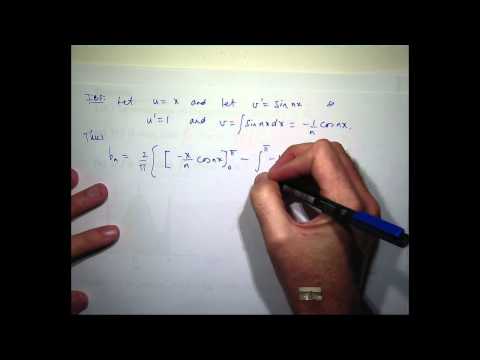 IBP: Let u = x and let v' = sin nx so
u' = 1 and v = ∫ sin nx dx = -1/n cos nx.
Thus
b_n = 2/π { [ -x/n cos nx ]_0^π - ∫^π -